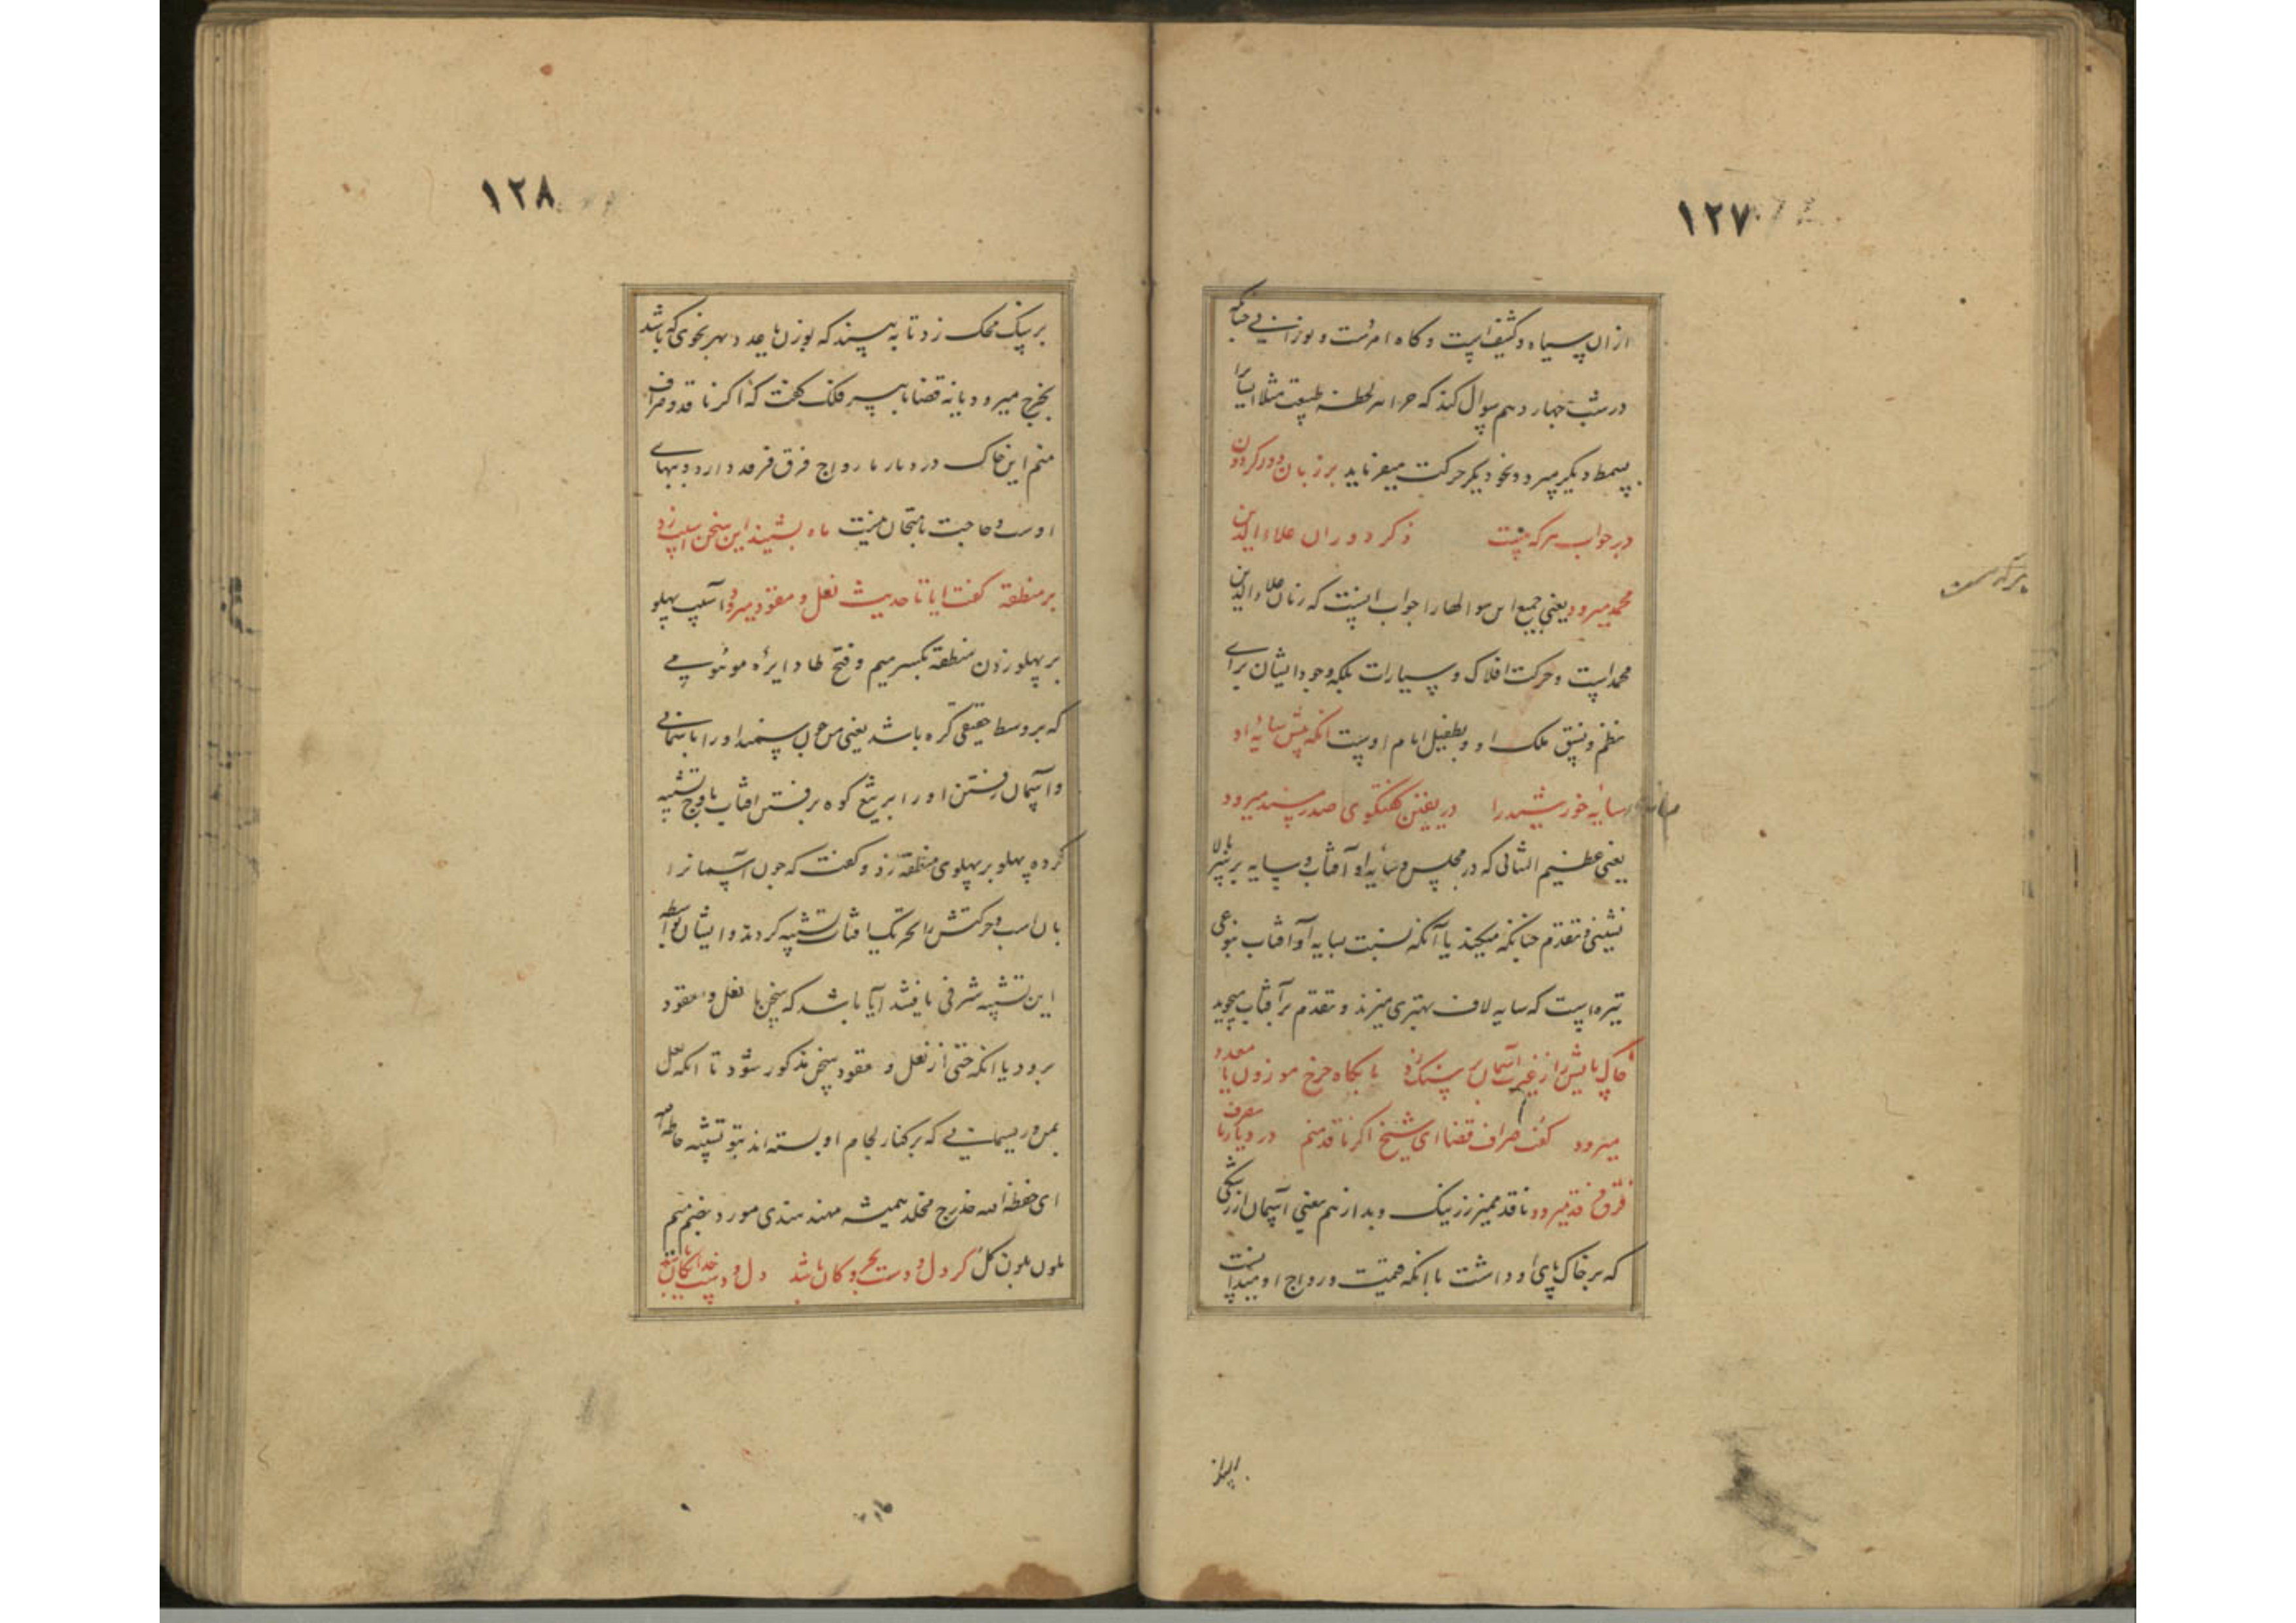 ١٢٧
ازان سیاه و کثیف است و گاه امرست و نورانی
در شب چهاردهم سوال کند که چرا هر لحظه
بسمط دیکر میرود و بنحو دیکر حرکت میفرماید بر زبان دور کردون
در جواب هر که هست ذکر دوران علاء الدین
محمد میرود یعنی جمیع این سوالها را جواب اینست که زمان علاء الدین
محمد است و حرکت افلاک و سیارات بلکه وجود ایشان برای
نظم و نسق ملک او و بطفیل ایام اوست انکه پیش سایه او
سایه خورشید را در یفتن گفتگوی صدر مسند میرود
یعنی عظیم الشانی که در مجلس و سایه او آفتاب و سایه بر سر
نشینی و تقدم چنانکه میکنند یا آنکه نسبت بسایه او آفتاب بنوعی
تیره است که سایه لاف بهتری میزند و تقدم بر آفتاب میجوید
خاک پایش را از غیرت آسمان بر سنک زد تا بکاه چرخ موزون یا معدود
میرود گفت صراف قضا ای شیخ اگر ناقد منم در دیار ما
فرق فرقد میرود ناقد ممیز زر نیک و بد از هم یعنی آسمان از رشکی
که بر خاک پای او داشت با انکه قیمت و رواج او میدانست
١٢٨
بر سنک محک زد تا به بیند که بوزن یا بعدد و بهر نحوی که باشد
بخرج میرود یا نه قضا با پیر فلک گفت که اگر ناقد و صراف
منم این خاک در دیار ما رواج فرق فرقد دارد و بهای
اوست و حاجت بامتحان نیست ماه بشنید این سخن اسب زد
بر منطقه گفت ایا تا حدیث نعل و مقود میرود اسب پهلو
بر پهلو زدن منطقه بکسر میم و فتح طا دایره
که بر وسط حقیقی کره باشد یعنی من چون سمند او را باسمانی
و آسمان رفتن او را بر تیغ کوه برفتن افتاب باوج تشبیه
کرده پهلو بر پهلوی منطقه زد و گفت که چون آسمانرا
بان اسب و حرکتش را بحرکت افتاب تشبیه کردند و ایشان بواسطه
این تشبیه شرفی یافتند آیا باشد که سخن با نعل و مقود
برود یا انکه حتی از نعل و مقود سخن مذکور شود تا انکه نعل
بمن و ریسمانی که بر کنار لجام او بسته اند بتو تشبیه
همیشه
گر دل و دست بحر و کان باشد دل و دست خدایگان باشد